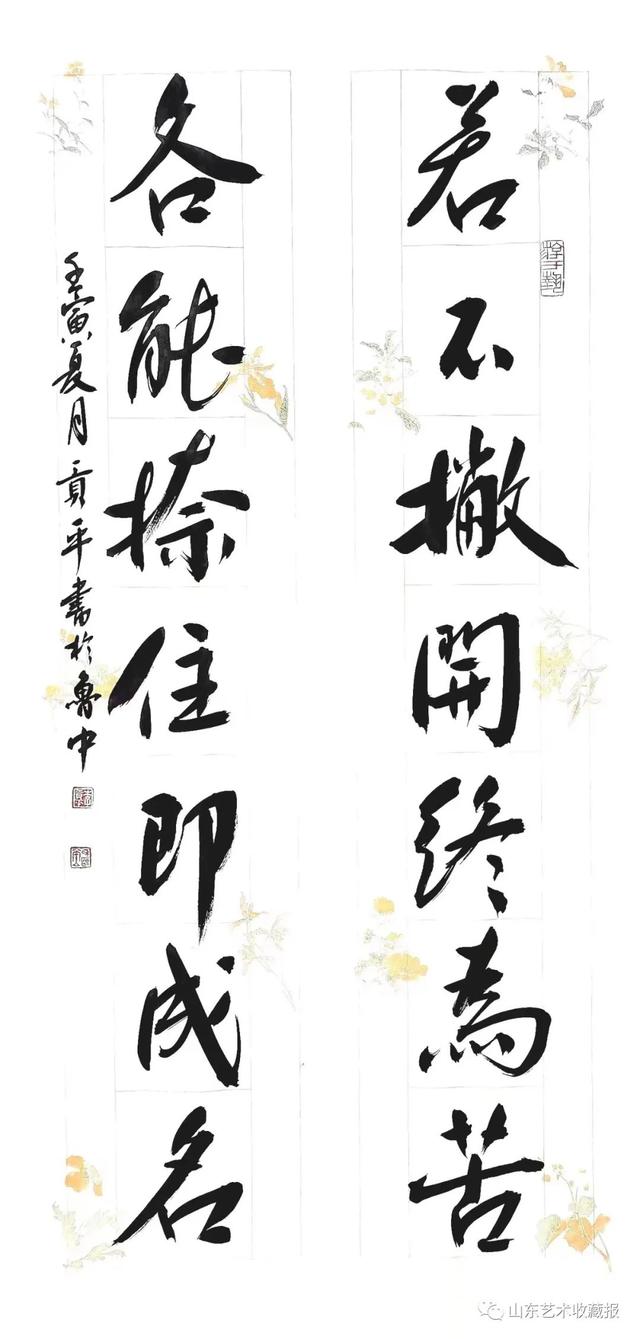 若不撇開終為苦
各能捺住即成名
壬寅夏月貢平書於魯中
山东艺术收藏报